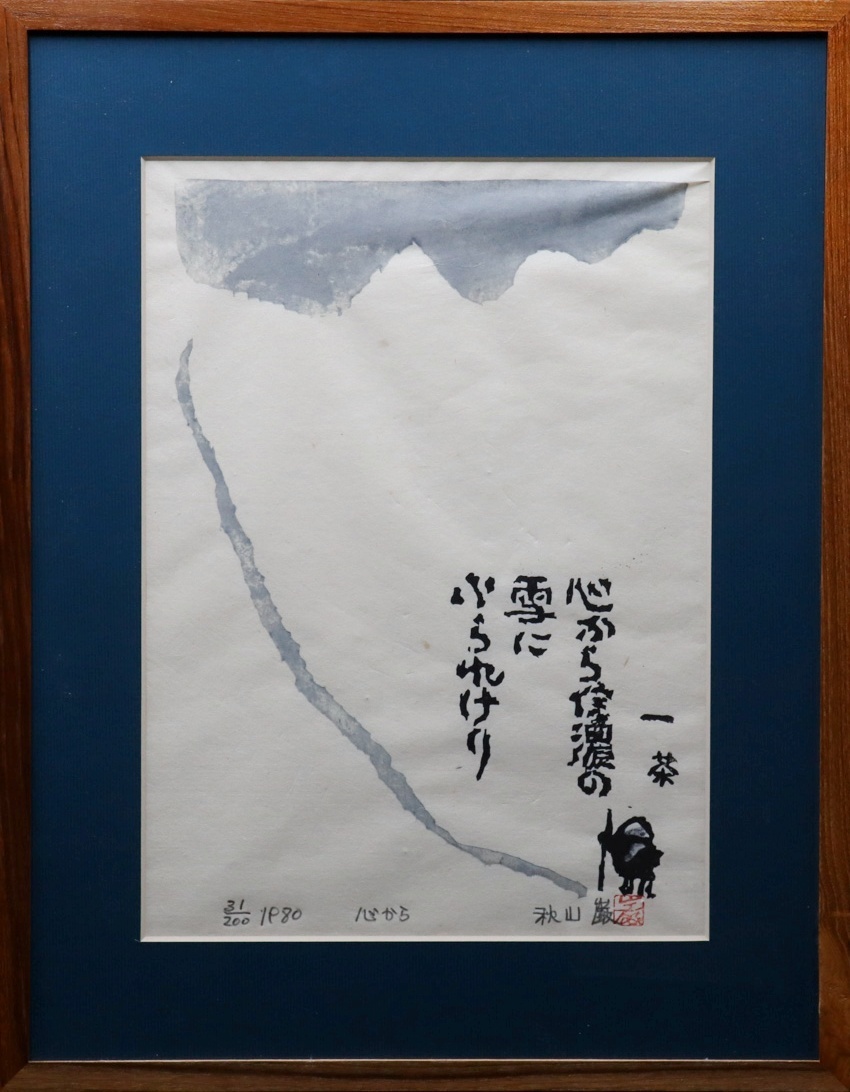 一茶
心から信濃の
雪に
ふられけり
31/200 1980 心から 秋山 巌